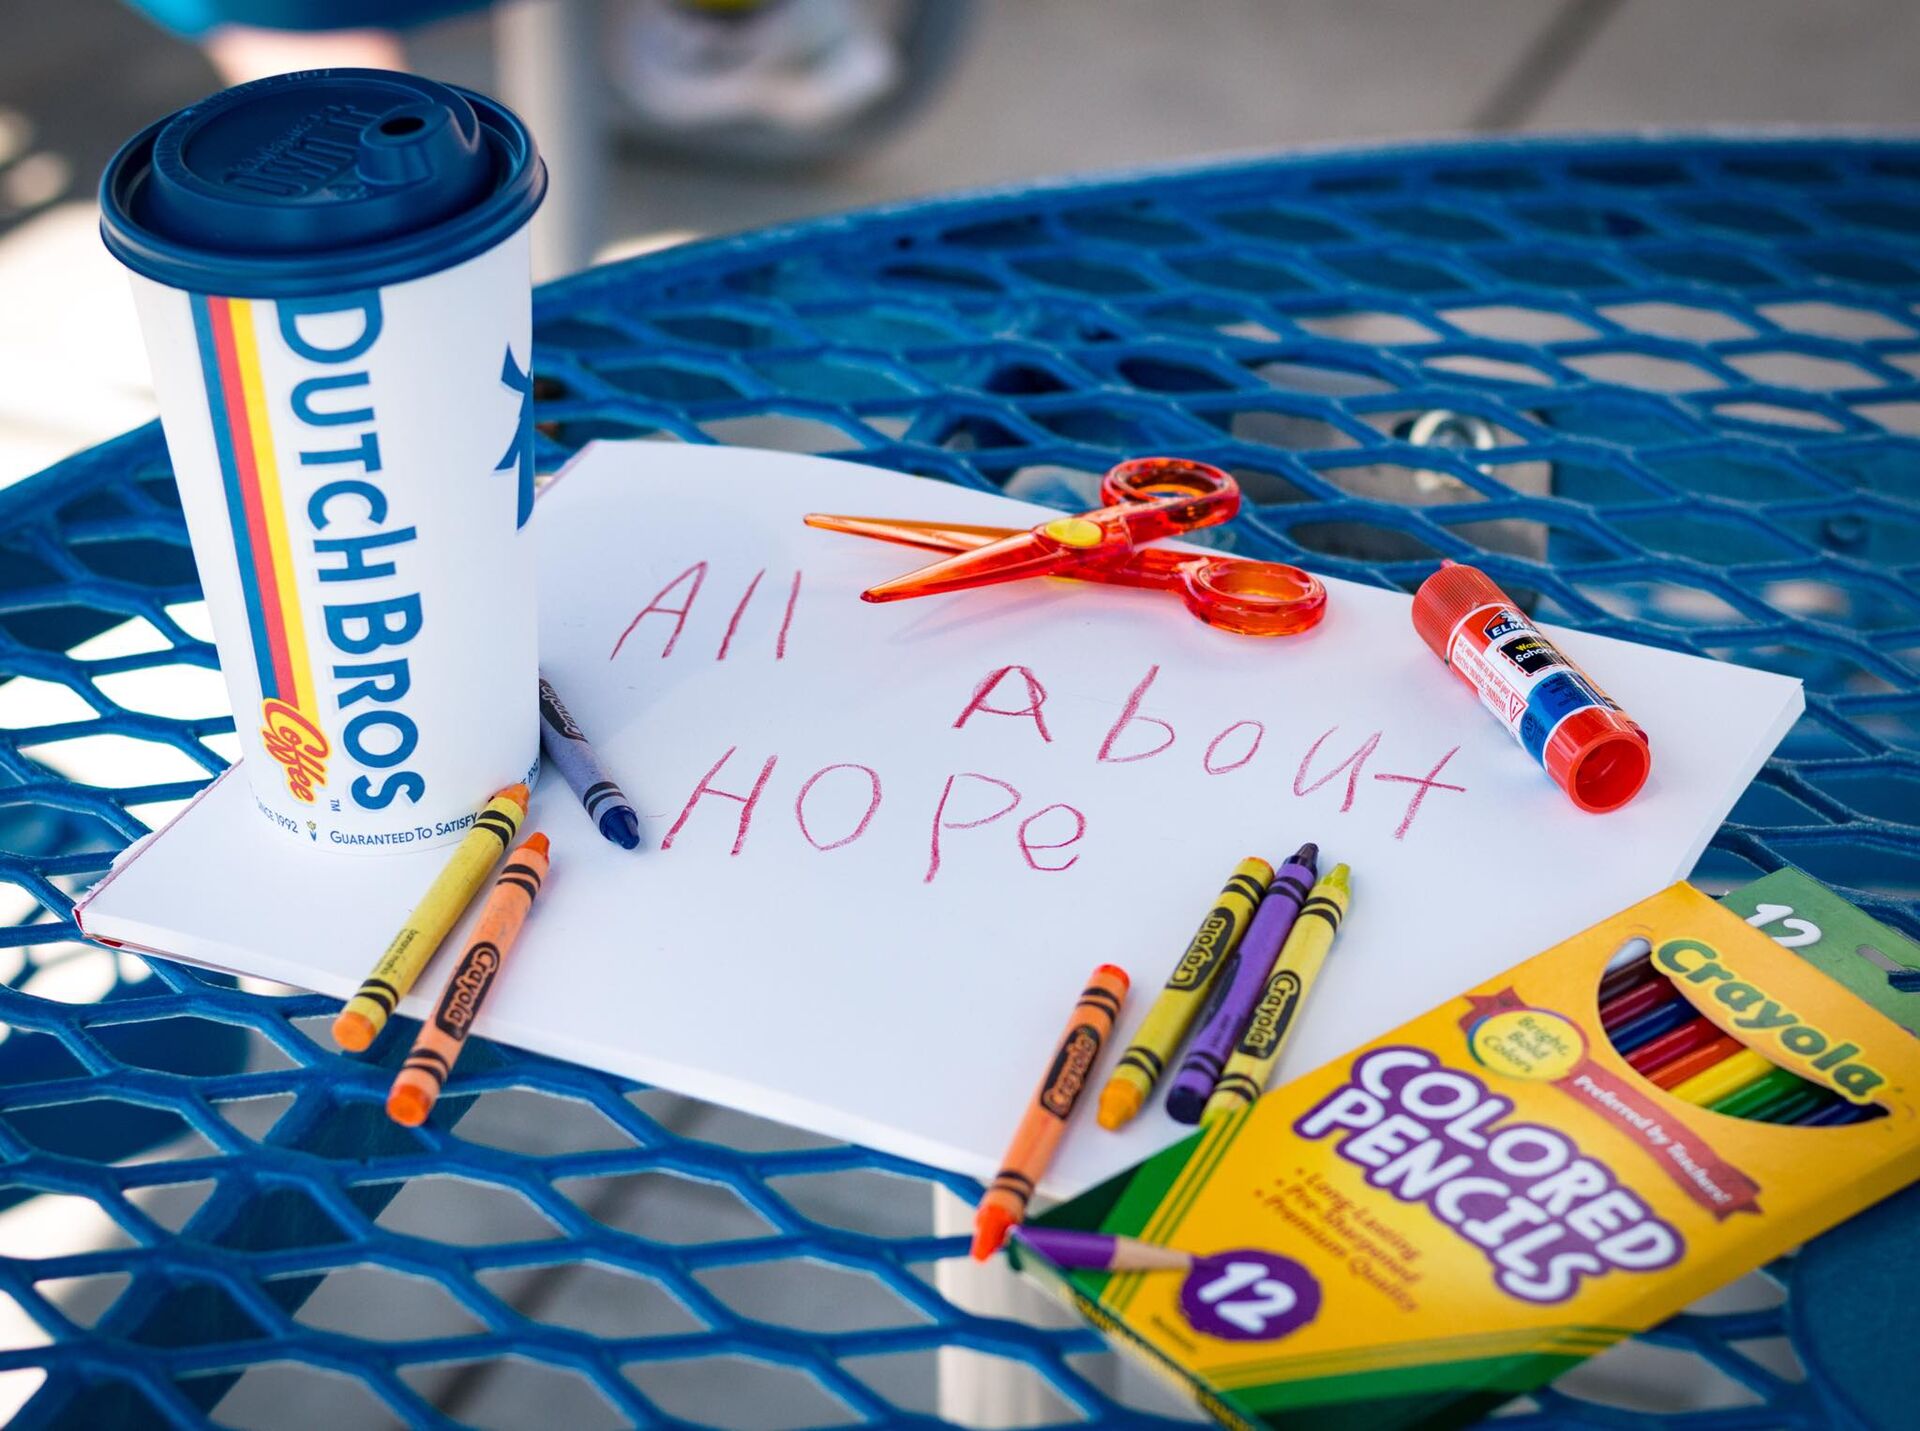 DUTCH BROS
Coffee
TM
SINCE 1992
GUARANTEED TO SATISFY
All
About
HOPe
ELMER'S
Crayola
Crayola
Crayola
Crayola
12
Crayola
Bright, Bold Colors
Preferred by Teachers!
COLORED
PENCILS
• Long-Lasting
• Pre-Sharpened
• Premium Quality
12